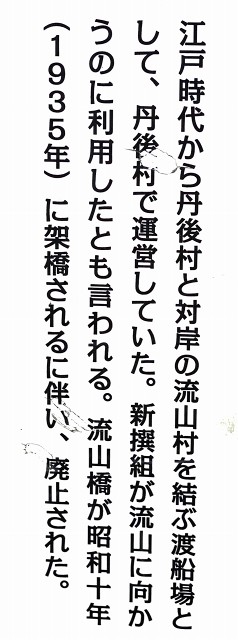 江戸時代から丹後村と対岸の流山村を結ぶ渡船場と
して、丹後村で運営していた。新撰組が流山に向か
うのに利用したとも言われる。流山橋が昭和十年
(1935年)に架橋されるに伴い、廃止された。